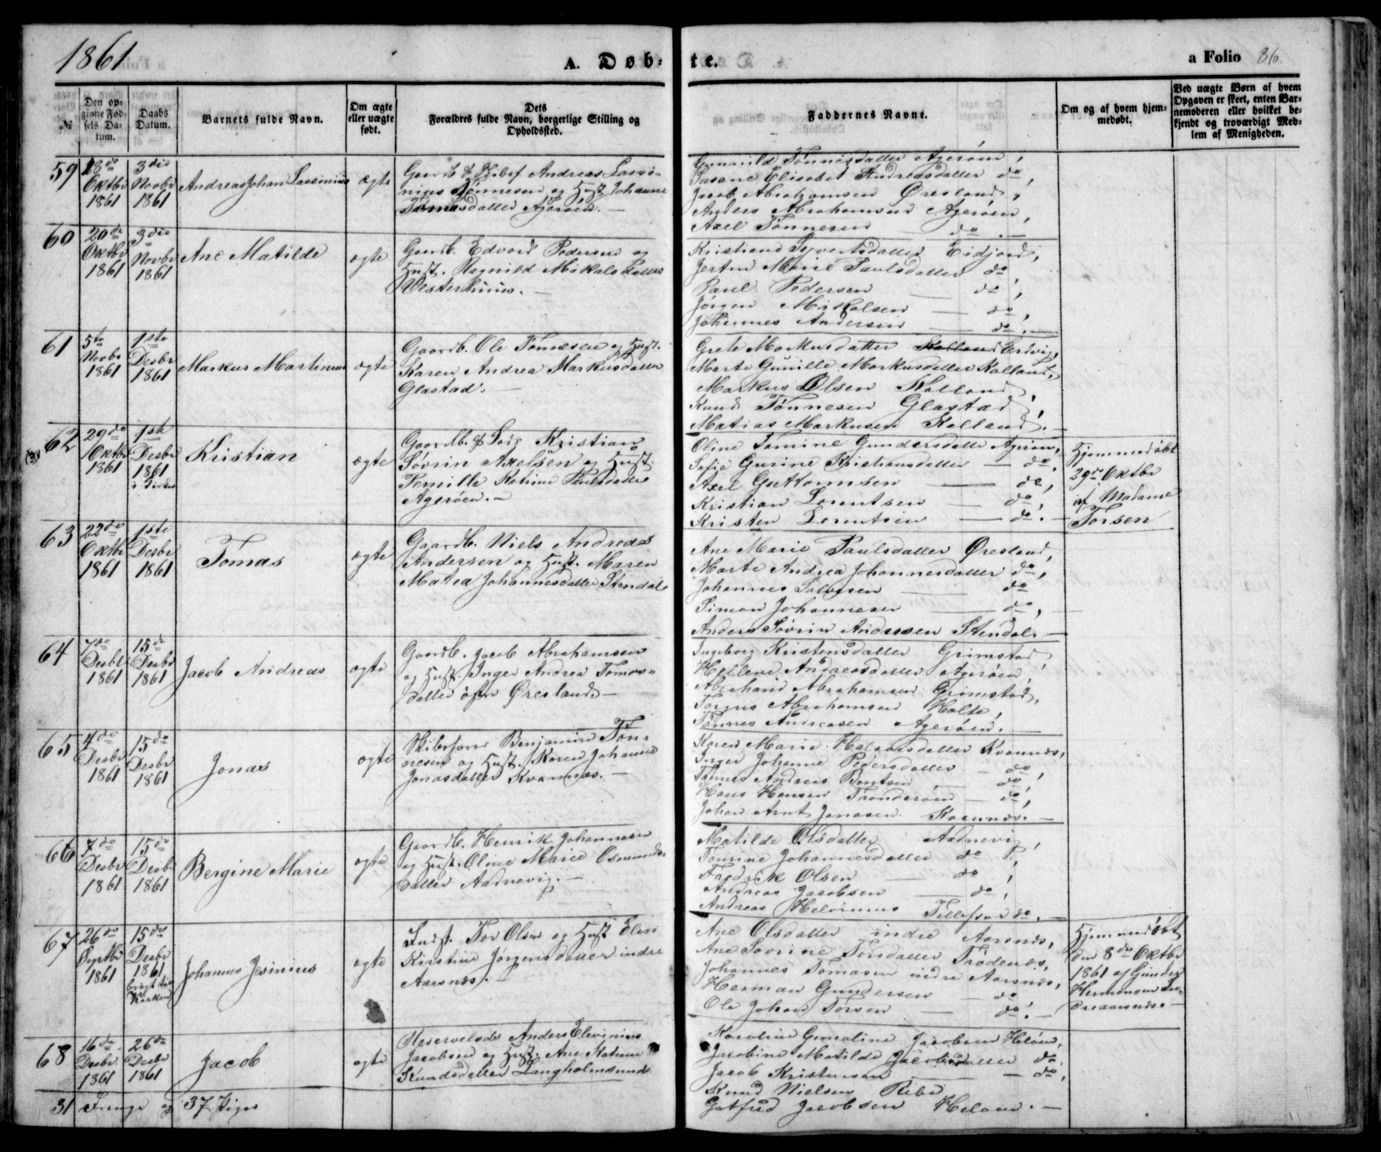 1861
A. Döbte.
a Folio 86.
№
Den opgivne Födsels Datum.
Daabs Datum.
Barnets fulde Navn.
Om ægte eller uægte født.
Dets Forældres fulde Navn, borgerlige Stilling og Opholdssted.
Faddernes Navne.
Om og af hvem hjemmedøbt.
Ved uægte Børn af hvem Opgaven er skeet, enten Barnemoderen eller hvilket bekjendt og troværdigt Medlem af Menigheden.
59
Oktbr 1861
3die Novbr 1861
Andreas Johan Lassinius
ægte
Gaardb. & Andreas Lassi-
nius Tønnesen og Hust. Johanne
Tomasdatter Agerøen. —
Gunnild Tønnesdatter Agerøen,
Susane Elisabet Andreasdatter do,
Jacob Abrahamsen Øresland,
Anders Abrahamsen Agerøen,
Axel Tønnesen do. —
60
20de Oktbr 1861
3die Novbr 1861
Ane Matilde
ægte
Gaardb. Edvard Pedersen og
Hust. Ragnild Mikalsdatter
Vesterhuus. —
Syvertsdatter Eidjord,
Marie Paulsdatter do,
Paul Pedersen — do,
Jørgen Mikalsen — do,
Johannes Andersen — do. —
61
5te Novbr 1861
1ste Desbr 1861
Markus Martinius
ægte
Gaardb. Ole Tønnesen og Hust.
Karen Andrea Markusdatter
Glastad. —
Grete Markusdatter
Marte Gunille Markusdatter Kalland,
Markus Olsen Kalland,
Knud Tønnesen Glastad,
Matias Markusen Kalland.
62
29de Oktbr 1861
1ste Desbr 1861
Kristian
ægte
Gaardb. & Kristian
Søvrin Axelsen og Hust.
Katrine
Agerøen. —
Oline Tomine Gundersdatter Agerøen,
Sofie Gurine Kristiansdatter — do,
Axel Guttormsen — do,
Kristian Lorentsen — do,
Kristen Lorentsen — do. —
Hjemmedøbt
29de Oktbr
af Madame
Torsen
63
22de Oktbr 1861
1ste Desbr 1861
Tomas
ægte
Gaardb. Niels Andreas
Andersen og Hust. Maren
Matea Johannesdatter Stendal
Ane Marie Paulsdatter Øresland,
Marte Andrea Johannesdatter do,
Johannes Salvesen — do
Simon Johannesen — do,
Anders Søvrin Andersen Stendal. —
64
7de Desbr 1861
15de Desbr 1861
Jacob Andreas
ægte
Gaardb. Jacob Abrahamsen
og Hust. Inger Andrea Tomas-
datter øfre Øresland —
Ingeborg Kristensdatter Grimstad,
Hellene Andreasdatter Agerøen,
Abraham Abrahamsen Grimstad,
Torjus Abrahamsen Holte,
Tønnes Andreasen Agerøen.
65
4de Desbr 1861
15de Desbr 1861
Jonas
ægte
Skibsfører Benjamin Tøn-
nesen og Hust. Karen Johanne
Jonasdatter Kvannæs. —
Karen Marie Kvannæs,
Inger Johanne Pedersdatter — do,
Tønnes Andreas Bentsen — do,
Hans Hansen Trondsøen — do,
Johan Arnt Jonasen Kvannæs. —
66
7de Desbr 1861
15de Desbr 1861
Bergine Marie
ægte
Gaardb. Henrik Johannesen
og Hust. Oline Marie Osmunds-
datter Aadnevig. —
Matilde Olsdatter Aadnevig
Tomine Johannesdatter do,
Fredrik Olsen — do,
Andreas Jacobsen — do,
Andreas Tellefsen do. —
67
26de Septbr 1861
15de Desbr 1861
Johannes Jesinius
ægte
Indst. Tor Olsen og Hust. Elen
Kirstine Jørgensdatter indre
Aarsnæs. —
Ane Olsdatter indre Aarsnæs,
Ane Søvrine Torsdatter
Johannes Tomasen indre Aarsnæs,
Herman Gundersen — do,
Ole Johan Torsen do. —
Hjemmedøbt
den 8de Oktbr
1861 af Gunder
Hermansen
68
16de Desbr 1861
26de Desbr 1861
Jacob
ægte
Reservelods Anders Elevinius
Jacobsen og Hust. Ane Katrine
Knudsdatter Langholmsund.
Karoline Jacobsen Heløen,
Jacobine Matilde Jacobsdatter do,
Jacob Kristensen — do,
Knud Nielsen Ribe
Gotfred Jacobsen Heløen. —
31 Drenge og 37 Piger